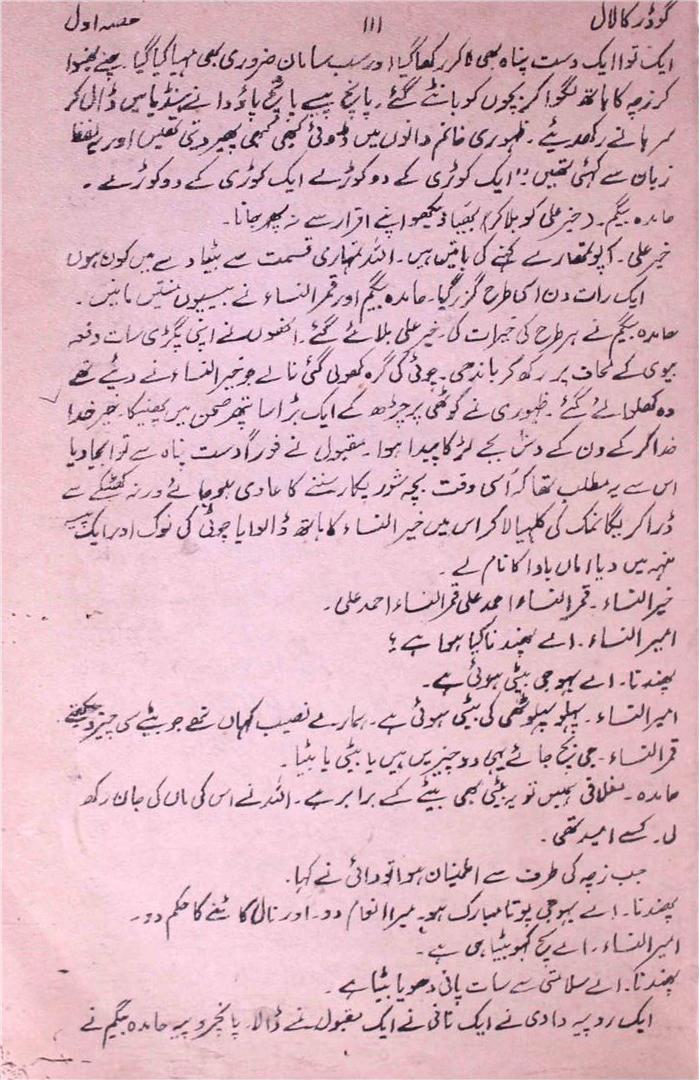 گوڈر کا لال ۱۱۱ حصہ اول
ایک توا ایک دست پناہ بھی لا کر رکھا گیا اور سب سامان ضروری بھی مہیا کیا گیا۔ چنے بھنوا
کر زچہ کا ہاتھ لگوا کر بچوں کو بانٹے گئے۔ پانچ پیسے پانچ پاؤ دانے ہنڈیا میں ڈال کر
سرہانے رکھدیئے۔ ظہوری خانم دانوں میں ڈوئی کبھی کبھی پھیر دیتی تھیں اور یہ لفظ
زبان سے کہتی تھیں:" ایک کوڑی کے دو کوڑے ایک کوڑی کے دو کوڑے۔
حامدہ بیگم۔ (خیر علی کو بلا کر) بھیا دیکھو اپنے اقرار سے نہ پھر جانا۔
خیر علی۔ آپو تمھارے کہنے کی باتیں ہیں۔ اللہ تمہاری قسمت سے بیٹا دے میں کون ہوں
ایک رات دن اسی طرح گزر گیا۔ حامدہ بیگم اور قمر النساء نے بیسیوں منتیں مانیں۔
حامدہ بیگم نے ہر طرح کی خیرات کی۔ خیر علی بلائے گئے۔ انھوں نے اپنی پگڑی سات دفعہ
بیوی کے لحاف پر رکھ کر باندھی۔ چوٹی کی گرہ کھولی گئی تالے جو خیر النساء نے دیئے تھے
وہ کھلوائے گئے۔ ظہوری نے کوٹھی پر چڑھ کے ایک بڑا سا پتھر صحن میں پھینکا۔ خیر خدا
خدا کر کے دن کے دس بجے لڑکا پیدا ہوا۔ مقبولن نے فوراً دست پناہ سے توا بجا دیا
اس سے یہ مطلب تھا کہ اُسی وقت بچہ شور پکار سننے کا عادی ہو جائے ورنہ کھٹکے سے
ڈرا کریگا نمک کی کلہیا لا کر اس میں خیر النساء کا ہاتھ ڈالوایا چوٹی کی نوک اور ایک پیسہ
منہہ میں دیا اماں باوا کا نام لے۔
خیر النساء۔ قمر النساء احمد علی قمر النساء احمد علی۔
امیر النساء۔ اے پھندنا کیا ہوا ہے؟
پھندنا۔ اے بہو جی بیٹی ہوئی ہے۔
امیر النساء۔ پہلو پہلوٹھی کی بیٹی ہوئی ہے۔ ہمارے نصیب کہاں تھے جو بیٹے سی چیز دیکھتے۔
قمر النساء۔ جی بچ جائے یہی دو چیزیں ہیں یا بیٹی یا بیٹا۔
حامدہ۔ مغلانی ہمیں تو یہ بیٹی بھی بیٹے کے برابر ہے۔ اللہ نے اس کی ماں کی جان رکھ
لی۔ کسے امید تھی۔
جب زچہ کی طرف سے اطمینان ہوا تو دائی نے کہا۔
پھندنا۔ اے بہو جی پوتا مبارک ہو۔ میرا انعام دو۔ اور نال کاٹنے کا حکم دو۔
امیر النساء۔ اے سچ کہو بیٹا ہی ہے۔
پھندنا۔ اے سلامتی سے سات پانی دھویا بیٹا ہے۔
ایک روپیہ دادی نے ایک نانی نے ایک مقبولن نے ڈالا۔ پانچ روپیہ حامدہ بیگم نے